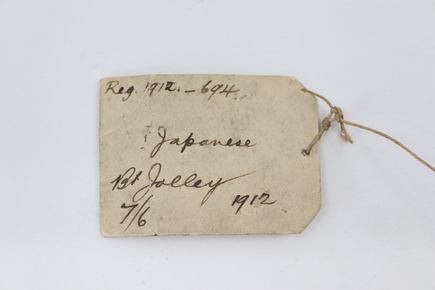 Reg. 1912. – 694.
Japanese
Bt Jolley
7/6 1912